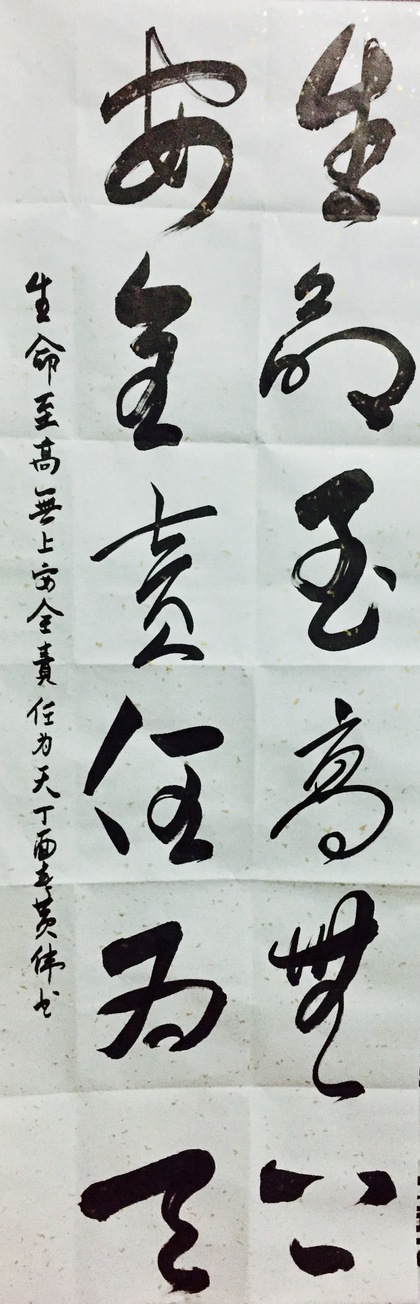 生命至高無上
安全責任为天
生命至高無上安全責任为天丁酉春黄伟书